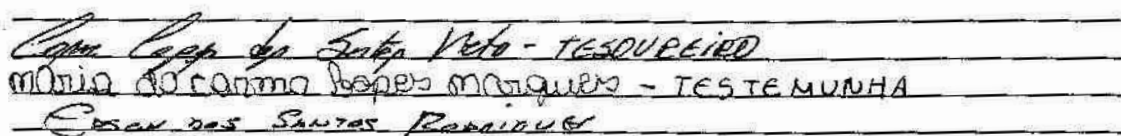 dos Santos Neto - TESOUREIRO
maria do carmo Lopes marques - TESTEMUNHA
Edson dos Santos Rodrigues